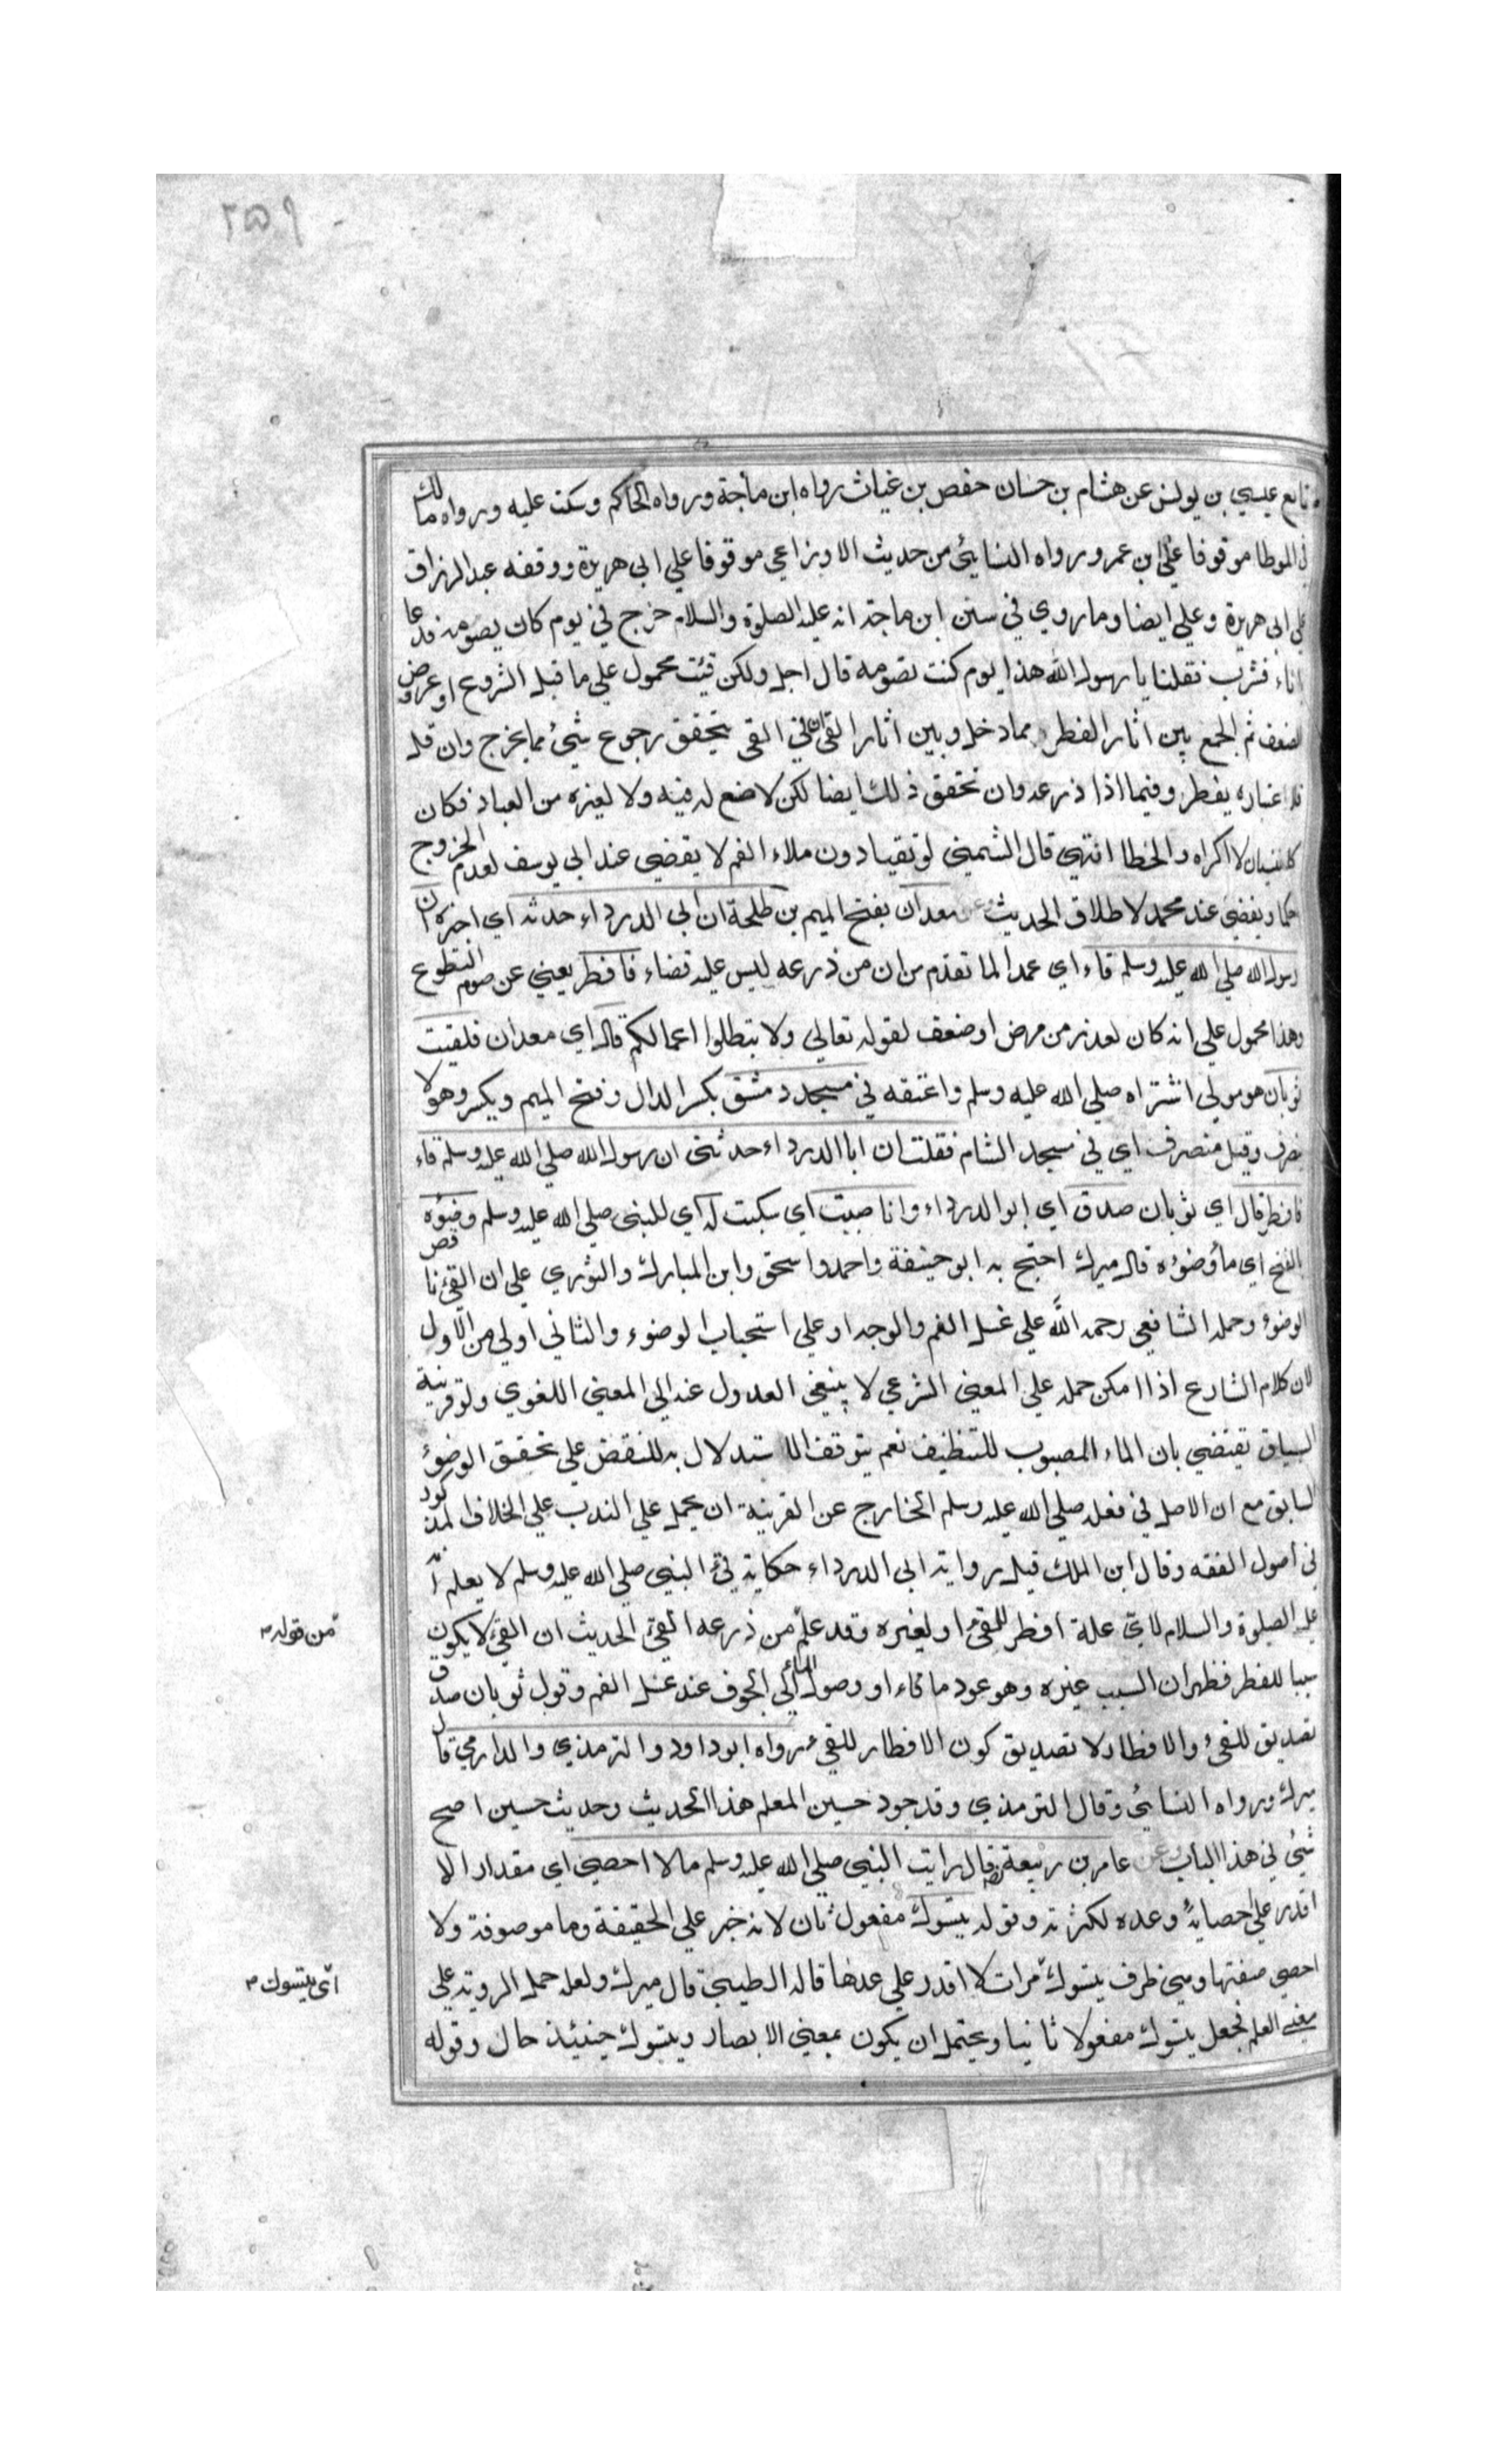 ٢٥٩
وتابع عيسي بن يونس عن هشام بن حسان حفص بن غياث رواه ابن ماجة ورواه الحاكم وسكت عليه ورواه مالك
في الموطا موقوفا علي ابن عمر ورواه النسائي من حديث الاوزاعي موقوفا علي ابي هريرة ووقفه عبد الرزاق
علي ابي هريرة وعلي ايضا وما روي في سنن ابن ماجة انه عليه الصلوة والسلام خرج في يوم كان يصومه فدعا
باناء فشرب فقلنا يا رسول الله هذا يوم كنت تصومه قال اجل ولكن قئت محمول علي ما قبل الشروع او عروض
الضعف ثم الجمع بين اثار الفطر مما دخل وبين اثار القئ ان في القئ يتحقق رجوع شئ مما يخرج وان قل
فلاعتباره يفطر وفيما اذا ذرعه وان تحقق ذلك ايضا لكن لا صنع له فيه ولا لغيره من العباد فكان
كالنسيان لا اكراه والخطا انتهي قال الشمني لو تقيا دون ملاء الفم لا يقضي عند ابي يوسف لعدم الخروج
حكما ويقضي عند محمد لاطلاق الحديث وعن معدان بفتح الميم بن طلحة ان ابي الدرداء حدثه اي اخبره ان
رسول الله صلي الله عليه وسلم قاء اي عمدا لما تقدم من ان من ذرعه ليس عليه قضاء فافطر يعني عن صوم التطوع
وهذا محمول علي انه كان لعذر من مرض او ضعف لقوله تعالي ولا تبطلوا اعمالكم قال اي معدان فلقيت
ثوبان هو مولي اشتراه صلي الله عليه وسلم واعتقه في مسجد دمشق بكسر الدال وفتح الميم ويكسر وهو لا
ينصرف وقيل منصرف اي في مسجد الشام فقلت ان ابا الدرداء حدثني ان رسول الله صلي الله عليه وسلم قاء
فافطر قال اي ثوبان صدق اي ابو الدرداء وانا صببت اي سكبت له اي للنبي صلي الله عليه وسلم وضوءه
بالفتح اي ماء وضوءه قال ميرك احتج به ابو حنيفة واحمد واسحق وابن المبارك والثوري علي ان القئ ناقض
الوضوء وحمله الشافعي رحمه الله علي غسل الفم والوجه او علي استحباب الوضوء والثاني اولي من الاول
لان كلام الشارع اذا امكن حمله علي المعني الشرعي لا ينبغي العدول عنه الي المعني اللغوي ولو قرينة
السياق تقتضي بان الماء المصبوب للتنظيف نعم يتوقف الاستدلال به للنقض علي تحقيق الوضوء
السابق مع ان الاصل في فعله صلي الله عليه وسلم الخارج عن القرينة ان يحمل علي الندب علي الخلاف المذكور
في اصول الفقه وقال ابن الملك قيل رواية ابي الدرداء حكاية قئ النبي صلي الله عليه وسلم لا يعلم انه
عليه الصلوة والسلام لاي علة افطر للقئ او لغيره وقد علم من ذرعه القئ الحديث ان القئ لا يكون
من قوله م
سببا للفطر فظهر ان السبب غيره وهو عود ما قاء او وصول الماء الي الجوف عند غسل الفم وقول ثوبان صدق
تصديق للقئ والافطار لا تصديق كون الافطار للقئ رواه ابو داود والترمذي والدارمي قال
ميرك ورواه النسائي وقال الترمذي وقد جود حسين المعلم هذا الحديث وحديث حسين اصح
شئ في هذا الباب وعن عامر بن ربيعة رض قال رايت النبي صلي الله عليه وسلم ما لا احصي اي مقدار الا
اقدر علي احصائه وعده لكثرته وقوله يتسوك مفعول ثان لانه خبر علي الحقيقة وما موصوفة ولا
احصي صفتها وهي ظرف يتسوك مرات لا اقدر علي عدها قاله الطيبي قال ميرك ولعله حمل الروية علي
اي يتسوك م
معني العلم فجعل يتسوك مفعولا ثانيا ويحتمل ان يكون بمعني الابصار ويتسوك حينئذ حال وقوله